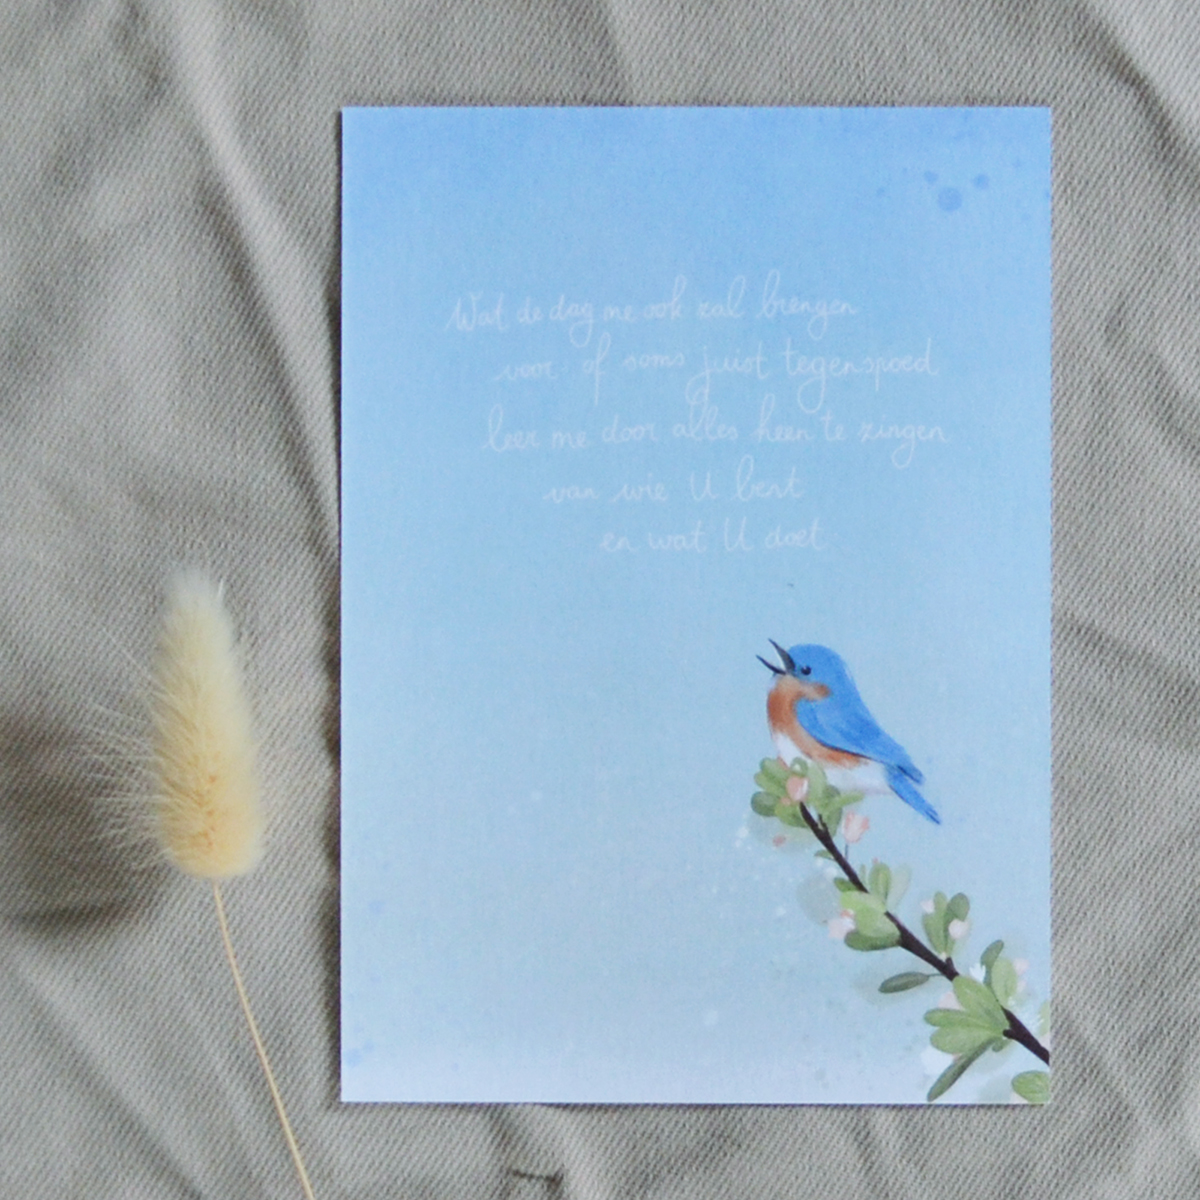 Wat de dag me ook zal brengen
voor- of soms juist tegenspoed
leer me door alles heen te zingen
van wie U bent
en wat U doet.